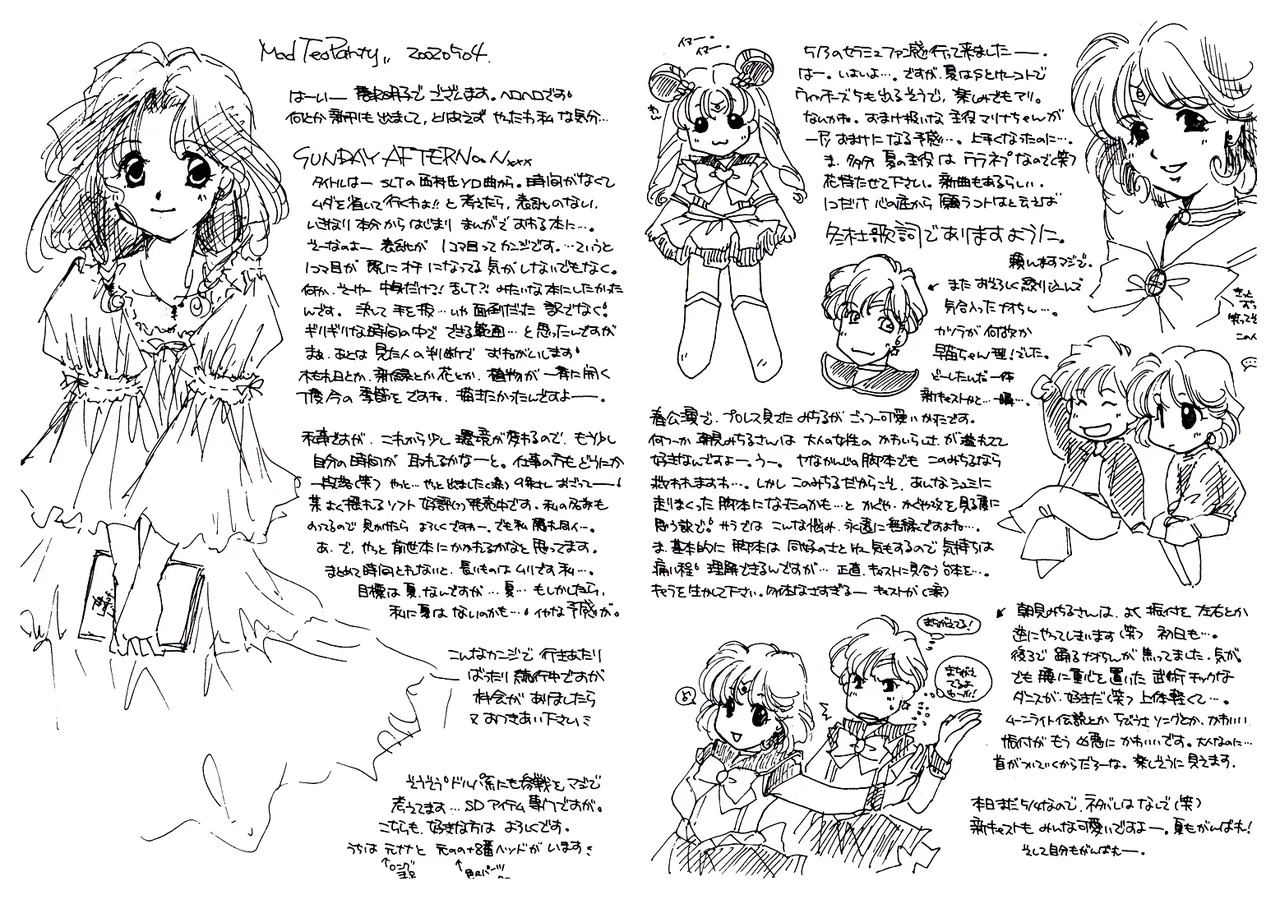 Mad Tea Party,, 20020504.
はーい
でございます。ヘロヘロです
何とか新刊も出まして、とりあえずやったも私な気分…
SUNDAY AFTERNOON xxx
タイトルは SLTの西村氏 曲から。時間がなくて
ムダを省いて行くわよ!!と考えたら、表紙のない、
いきなり本分からはじまりまんがでおわる本に…。
そーなのよー 表紙が1コマ目ってカンジです。…というと
1コマ目が既にオチになってる気がしないでもなく。
何か、そーゆー中身だけで!まして?!みたいな本にしたかった
んです。決して手を抜…いや面倒だった訳でなく
ギリギリな時間の中でできる範囲…と思ったんですが
まぁ、あとは見た人の判断でおねがいします
木もれ日とか、新緑とか花とか、植物が一斉に開く
丁度今の季節をですね、描きたかったんですよー。
私事ですが、これから少し環境が変わるので、もう少し
自分の時間が取れるかなーと。仕事の方もどうにか
一段落(笑)やっと…やっと出ました(涙)
某よく揺れるソフト 好評(?)発売中です。私の
のってるので見かけたらよろしくですわー。でも私
あ、で、やっと前世本にかかれるかなと思ってます。
まとめて時間とれないと、長いものはムリです私…。
目標は夏、なんですが…夏…もしかしたら、
私に夏はないのかも… イヤな予感が。
こんなカンジで行きあたり
ばったり 進行中ですが
機会がありましたら
又おつきあい下さいミ
そうそう ドルパ系にも参戦をマジで
考えてます…SDアイテム専門ですが。
こちらも、好きな方はよろしくです。
うちは元ナナと元のの+8番ヘッドがいますミ
ロング
イヤー。
イヤー。
5/3のセラミュファン感行って来ましたー。
はー。いよいよ…。ですが、夏はSとゆーコトで
Tinホーズ5も出るそうで、楽しみでもアリ。
なんかね。おまけ扱いな主役マリナちゃんが
一层おまけになる予感…。上手くなったのに…。
ま、多分夏の主役はテラネプなので(笑)
花持たせて下さい。新曲もあるらしい。
1コだけ心の底から願うコトはと言えば
冬杜歌詞でありますように。
頼んますマジで。
またおそろしく絞り込んで
気合入った さん…。
カツラが何故か
早苗ちゃん理!でした。
どーしたんだ一体
新キャストかと…一瞬…。
春公演で、プロレス見てたみちるがごっつー可愛いかたです。
何つーか朝見みちるさんは大人の女性のかわいらしさが溢れてて
好きなんですよー。うー。ヤなかんじの脚本でもこのみちるなら
救われますわ…。しかしこのみちるだからこそ、あんなシュミに
走りまくった脚本になったのかも…とかぐや、かぐや改を見る度に
思う訳で サラではこんな悩み、永遠に無縁ですよね…。
ま、基本的に脚本は同好のさとゆー気もするので気持ちは
痛い程 理解できるんですが…正直、キャストに見合う台本を…。
キャラを生かして下さい。勿体なさすぎるー キャストが(涙)
まちがえてる!
まちがえてるよ
朝見みちるさんは、よく振付を左右とか
逆にやってしまいます(笑)初日も…。
後ろで踊る さんが焦ってました、気が。
でも腰に重心を置いた武術チックな
ダンスが、好きだ(笑)上体軽くて…。
ムーンライト伝説とかちびうさソングとか、かわいい
振付がもう凶悪にかわいいです。大人なのに…
首がついていくからだろーな。楽しそうに見えます。
本日まだ5/4なので、ネタバレはなしで(笑)
新キャストもみんな可愛いですよー。夏もがんばれ!
そして自分もがんばれー。